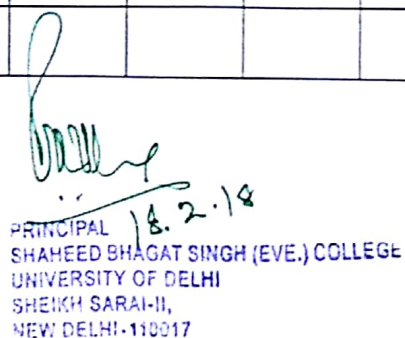 18.2.18
PRINCIPAL
SHAHEED BHAGAT SINGH (EVE.) COLLEGE
UNIVERSITY OF DELHI
SHEIKH SARAI-II,
NEW DELHI-110017